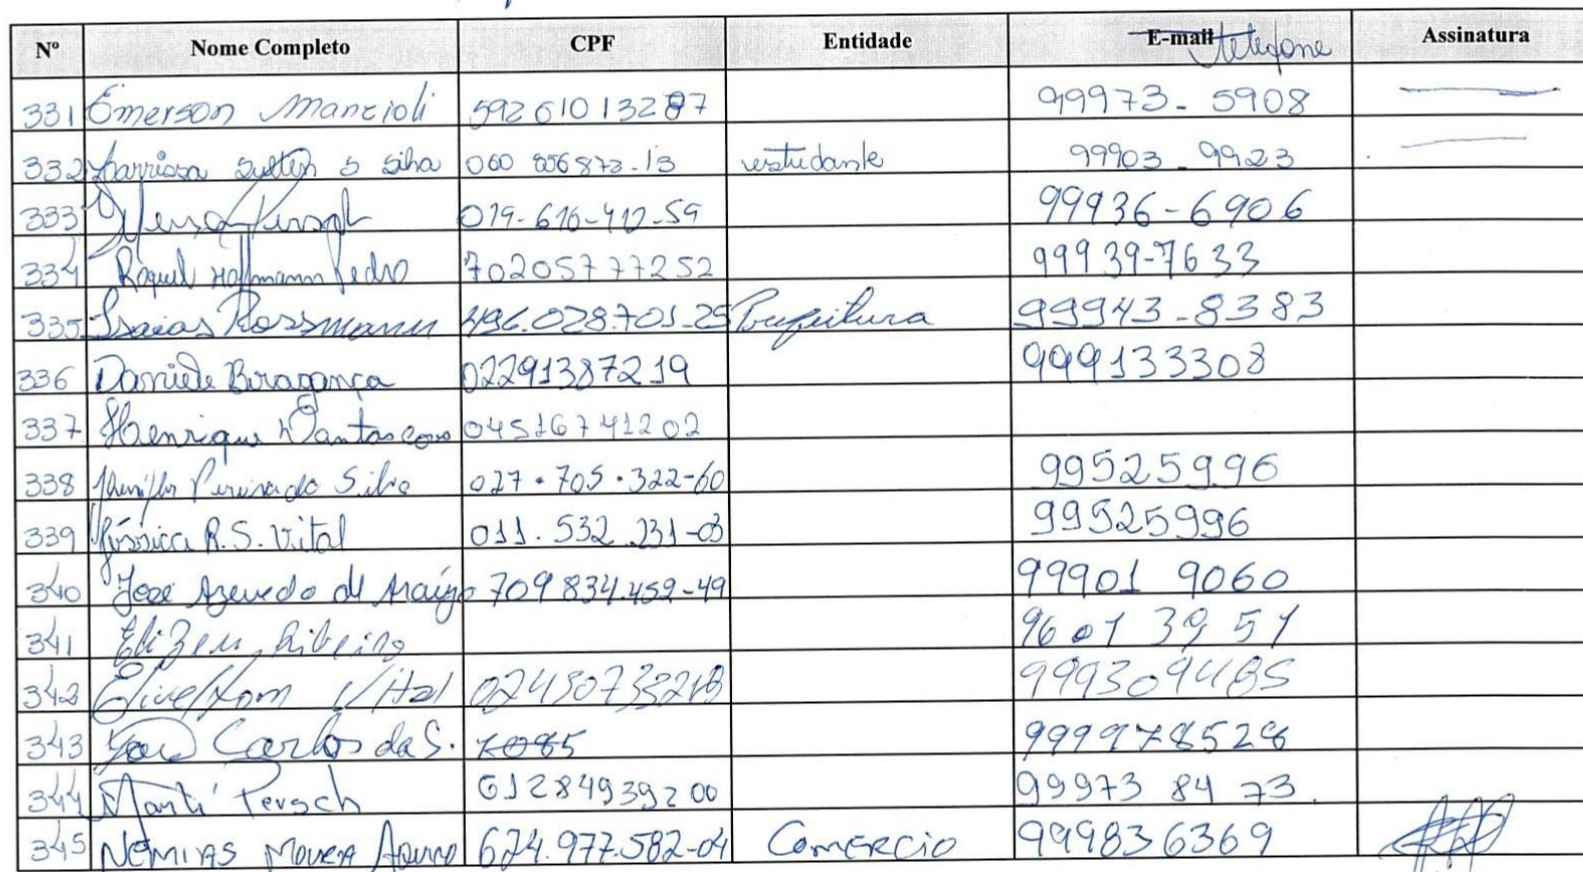 Nº Nome Completo CPF Entidade E-mail telefone Assinatura
331 Emerson Manzioli 592 610 132 87 99973-5908
332 Larrissa S Silva 060 856 873-13 estudante 99903-9923
333 019-616-412-59 99936-6906
334 Raquel Hoffmann Pedro 70205777252 99939-7633
335 Isaias Rossmann 496.028.701-25 Prefeitura 99943-8383
336 Daniele Bragança 02291387219 999133308
337 Henrique Dantas 04516741202
338 Pereira da Silva 027.705.322-60 99525996
339 Jéssica R.S. Vital 011.532.231-03 99525996
340 José Azevedo de Araújo 709 834.452-49 99901 9060
341 Elizeu Ribeiro 9601 39 51
342 Vital 99930
343 Carlos da S. 7085 999978528
344 Persch 61284939200 99973 84 73
345 Nemias 674.977.582-04 Comercio 999836369